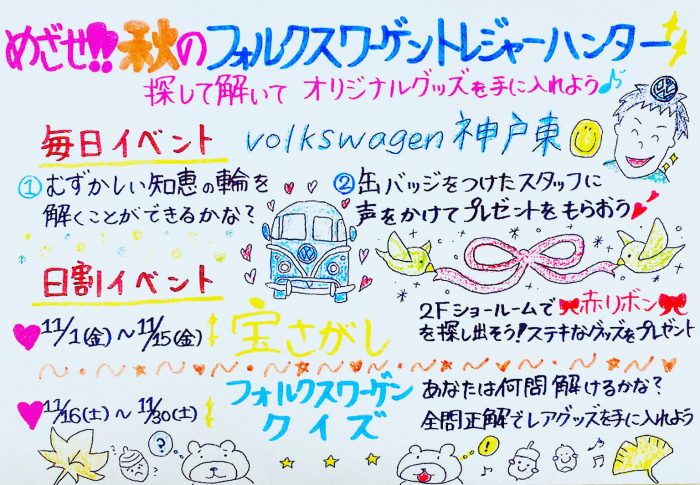 めざせ!!秋のフォルクスワーゲントレジャーハンター
探して解いて オリジナルグッズを手に入れよう♪
毎日イベント
volkswagen 神戸東
① むずかしい知恵の輪を
解くことができるかな?
② 缶バッジをつけたスタッフに
声をかけてプレゼントをもらおう
日割イベント
11/1(金)~11/15(金)
宝さがし
2Fショールームで赤リボン
を探し出そう!ステキなグッズをプレゼント
11/16(土)~11/30(土)
フォルクスワーゲン
クイズ
あなたは何問解けるかな?
全問正解でレアグッズを手に入れよう
?
!